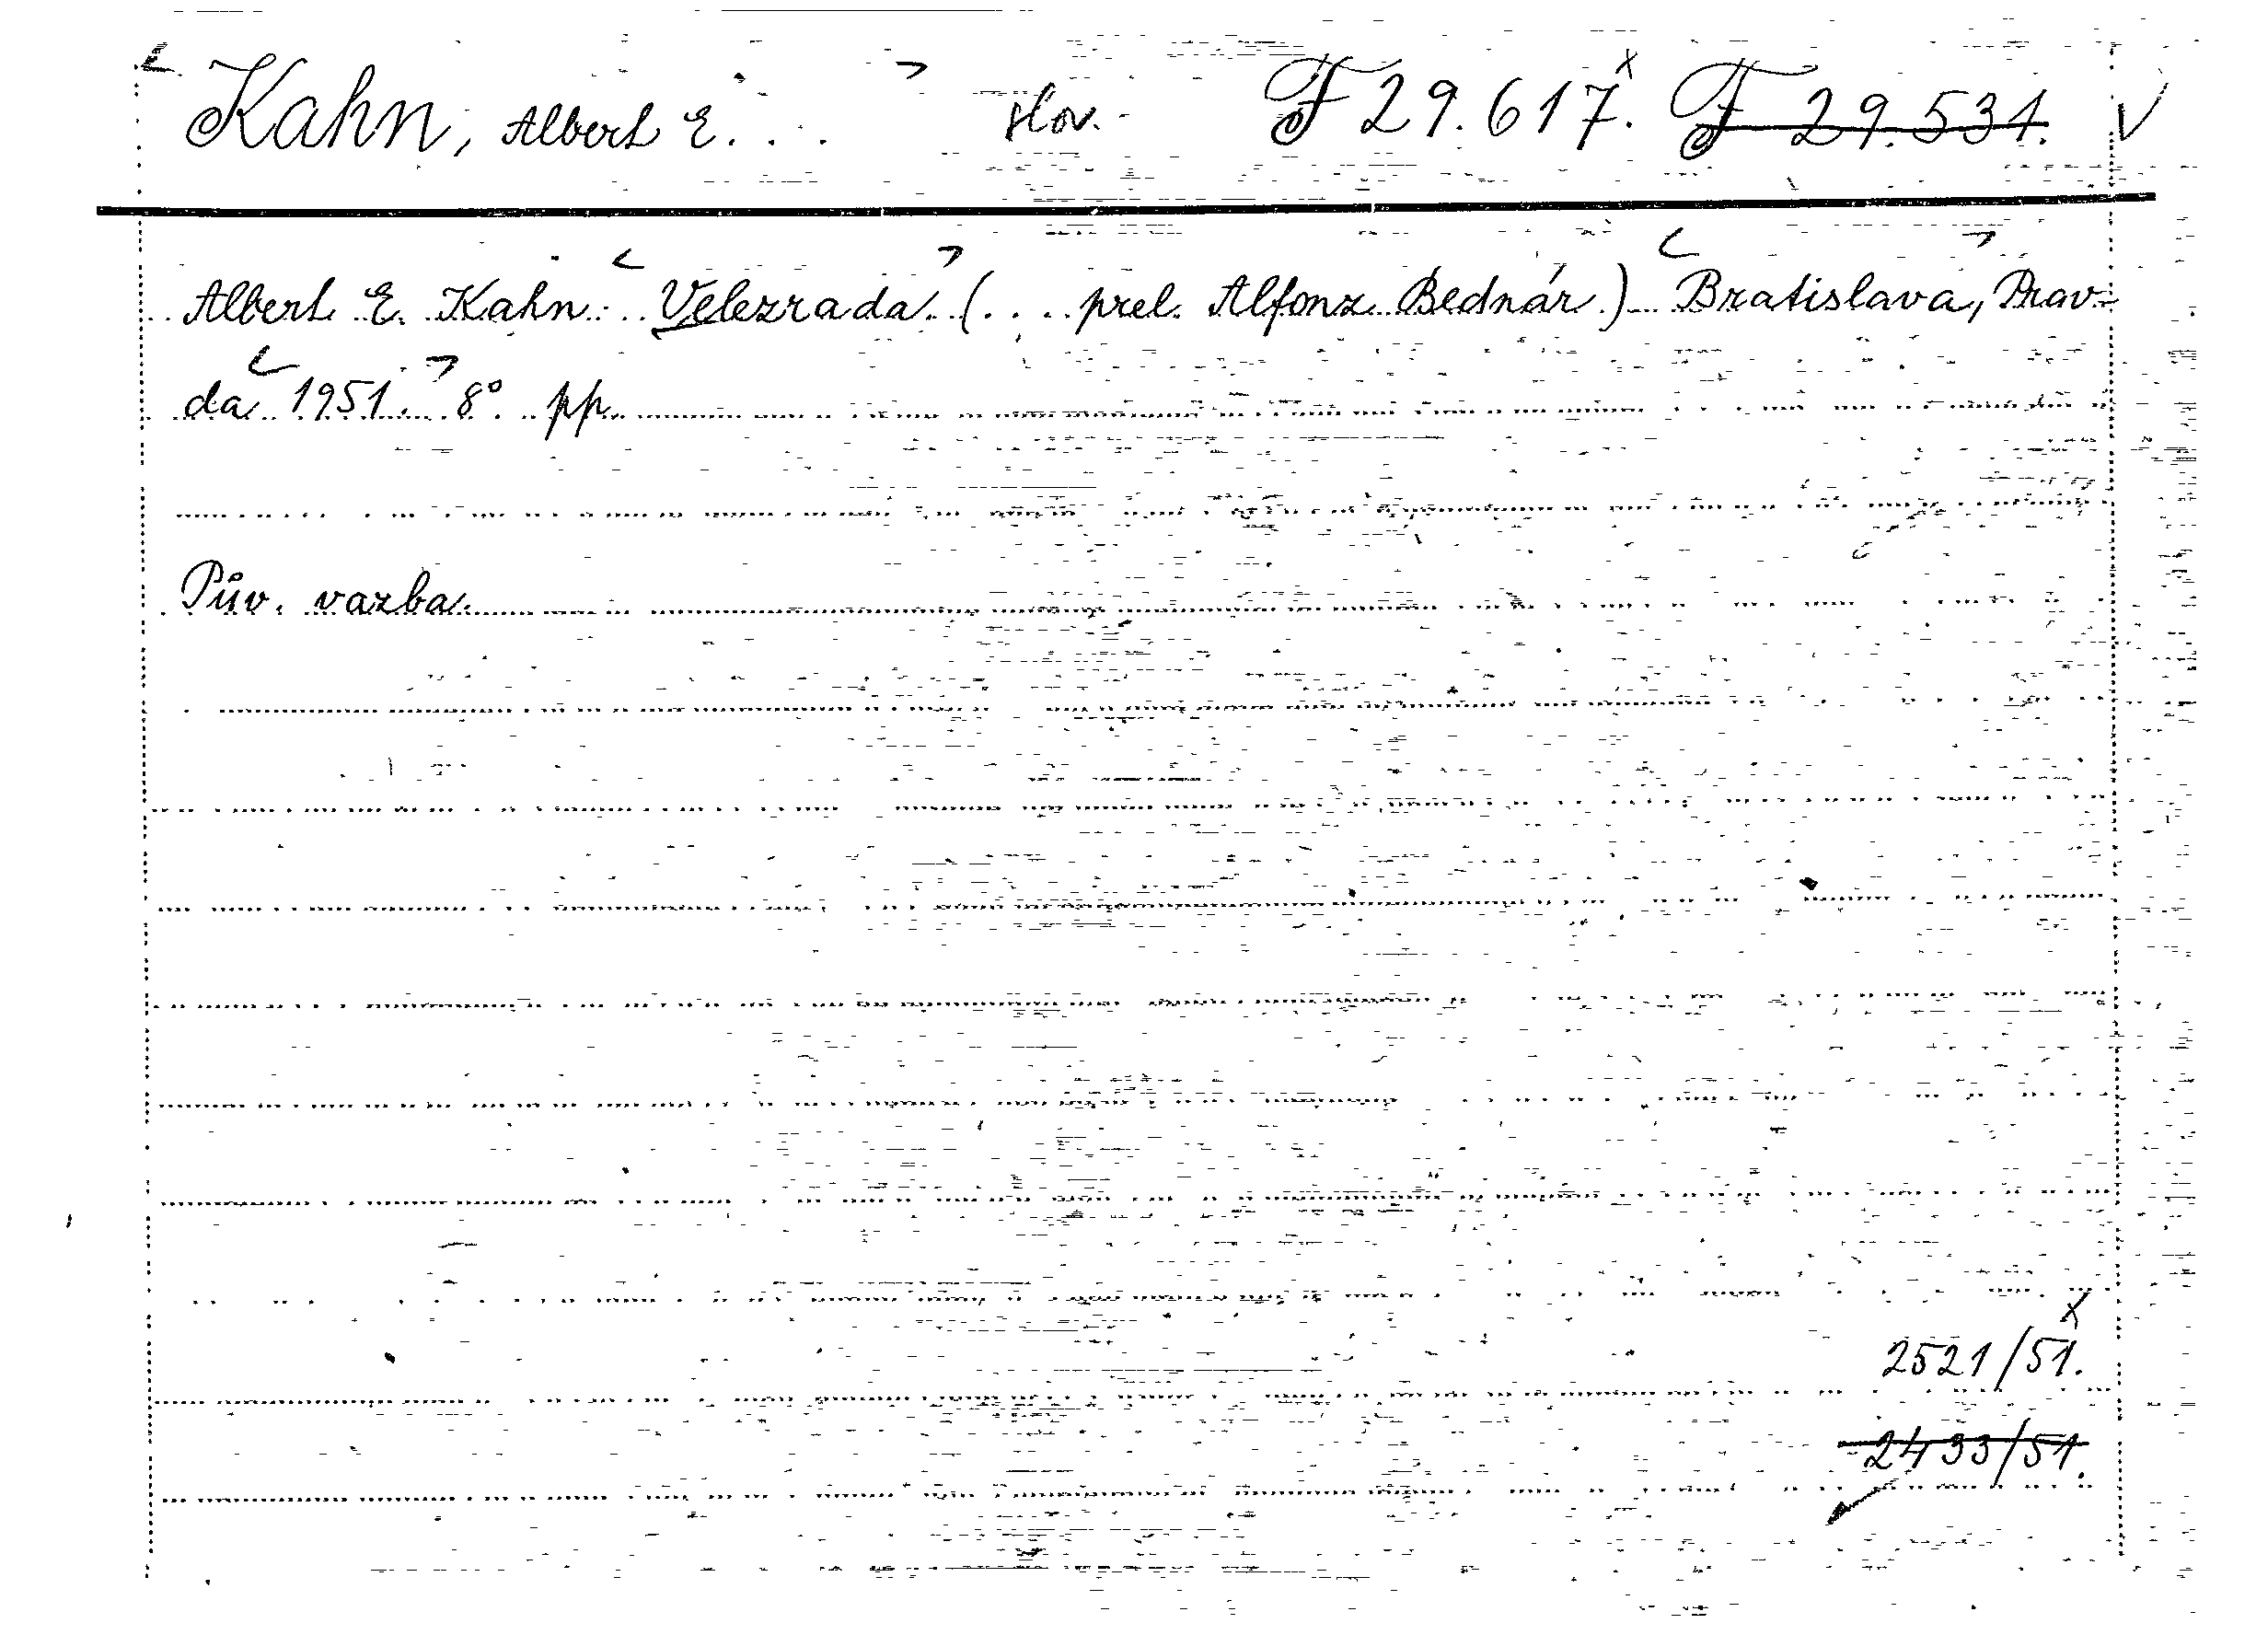 Kahn, Albert E. . . slov. F 29.617. x F 29.531. V
Albert E. Kahn. Velezrada (. . . prel. Alfonz Bednár) Bratislava, Prav-
da 1951. 8° pp.
Pův. vazba.
x
2521/51.
2433/51.